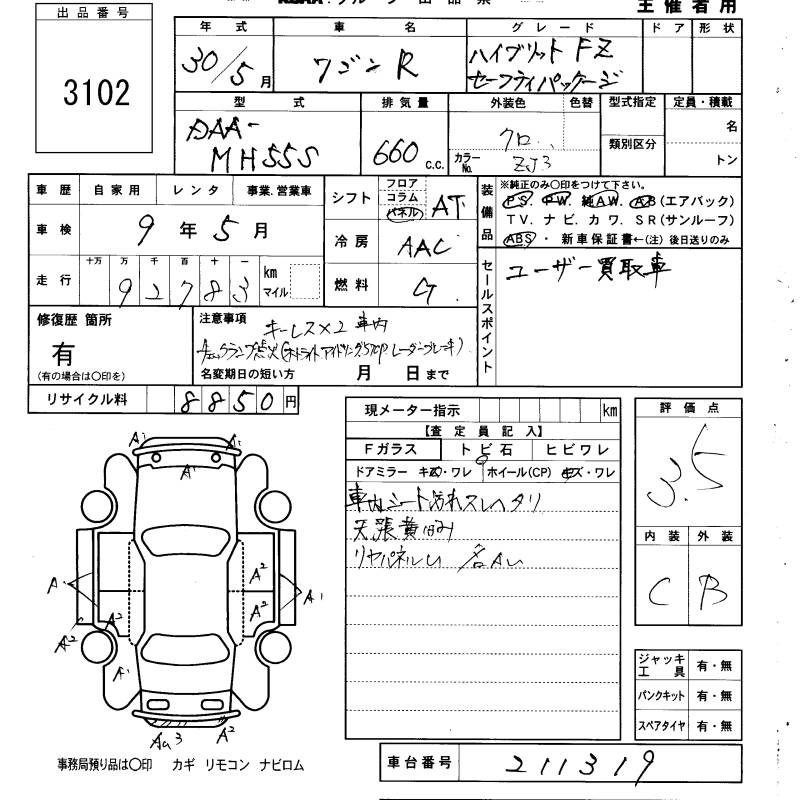 主催者用
出品番号
3102
年式 車名 グレード ドア 形状
30/5月 ワゴンR ハイブリット FZ
セーフティパッケージ
型式 排気量 外装色 色替 型式指定 定員・積載
DAA-
MH55S 660 c.c. クロ 類別区分 名
カラーNo. ZJ3 トン
車歴 自家用 レンタ 事業.営業車
車検 9年5月
走行 十万 万 千 百 十 一 km マイル
92783
シフト フロア コラム パネル AT
冷房 AAC
燃料 G
装備品 ※純正のみ〇印をつけて下さい。
PS. PW. 純AW. AB(エアバック)
TV. ナビ. カワ. SR(サンルーフ)
ABS・新車保証書←(注)後日送りのみ
セールスポイント
ユーザー買取車
修復歴 箇所
有
(有の場合は〇印を)
注意事項
キーレス×2 車内
チェックランプ点灯(オートライト アイドリングSTOP レーダーブレーキ)
名変期日の短い方 月 日まで
リサイクル料 8850円
現メーター指示 km
【査定員記入】
Fガラス トビ石 ヒビワレ
ドアミラー キズ・ワレ ホイール(CP) キズ・ワレ
車内シート汚れスレヘタリ
天張黄ばみ
リヤパネルU 各AU
評価点
3.5
内装 外装
C B
A1 A1
A1
A2
A A2 A2 A1
A2
A1
AU3 A2
ジャッキ工具 有・無
パンクキット 有・無
スペアタイヤ 有・無
事務局預り品は〇印 カギ リモコン ナビロム
車台番号 211319